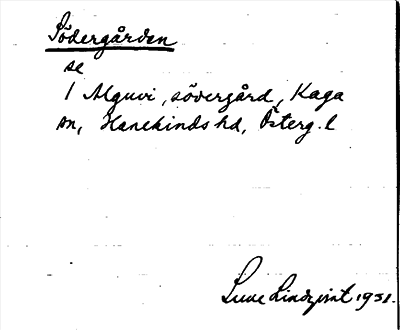 Södergården
se
1 Alguvi, södergård, Kaga
sn, Hanekinds hd, Österg. l
Sune Lindqvist 1931.